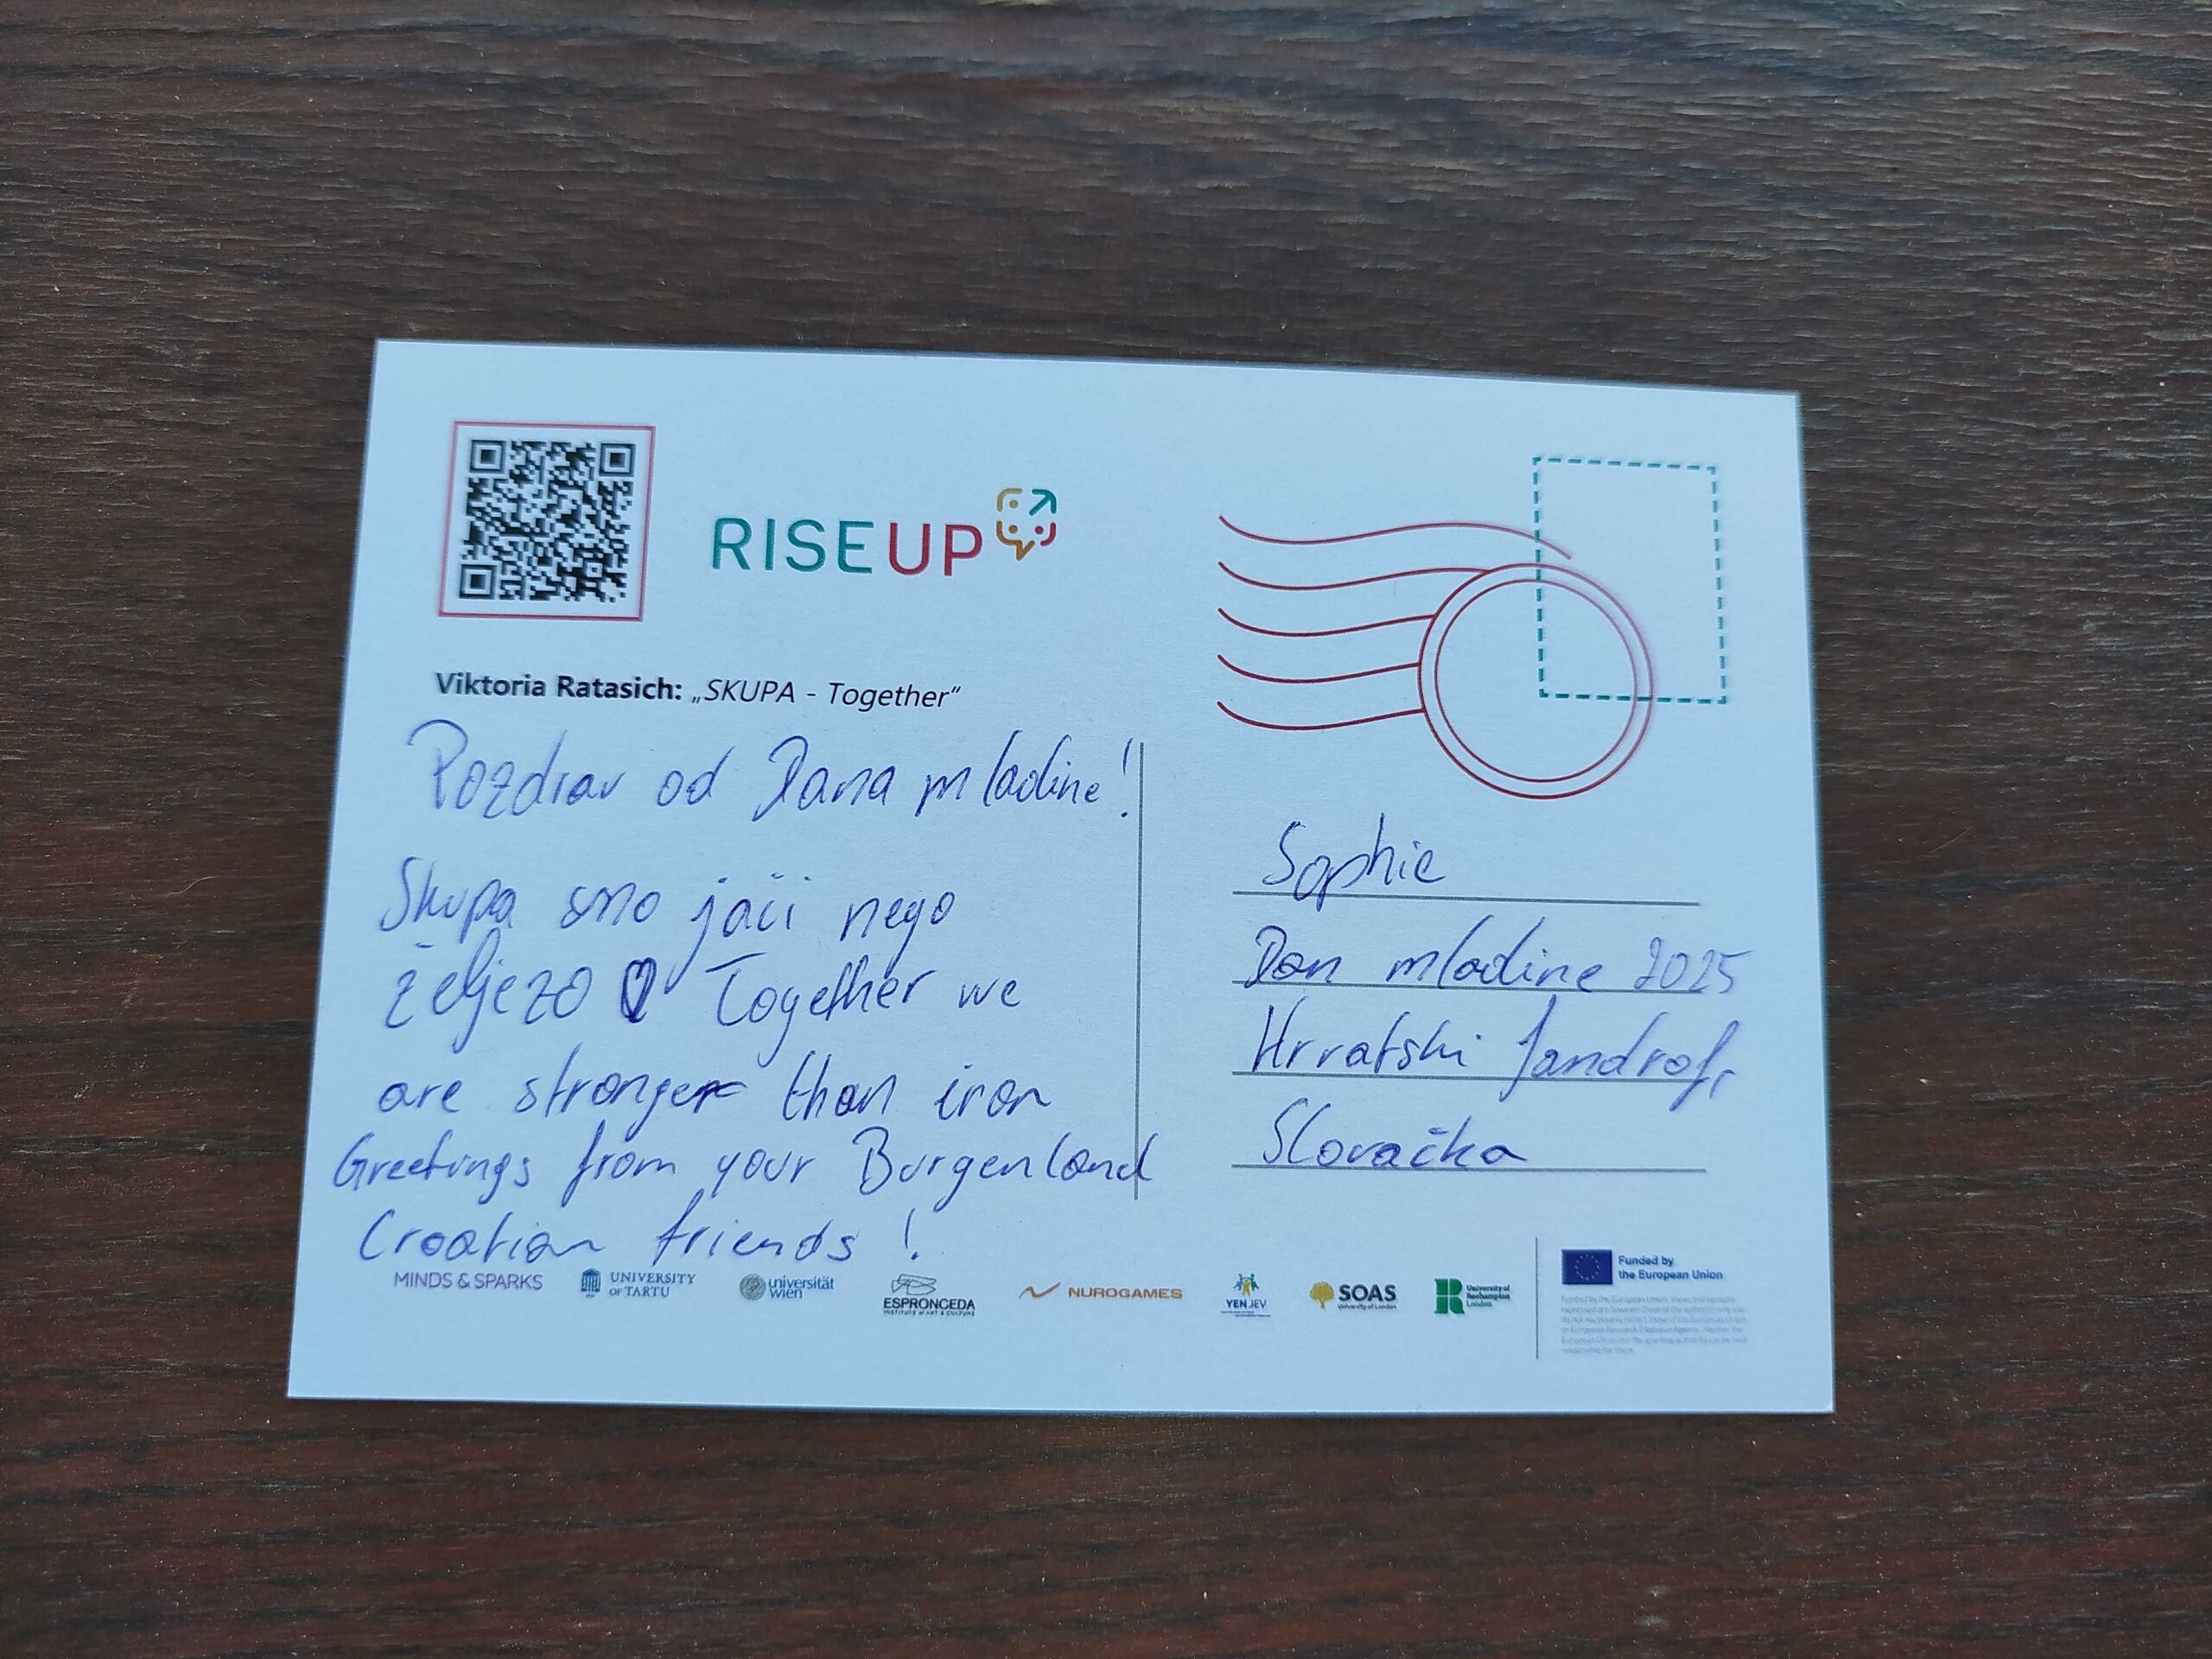 RISEUP
Viktoria Ratasich: „SKUPA - Together“
Pozdrav od Dana mladine!
Skupa smo jači nego
željezo ♡ Together we
are stronger than iron
Greetings from your Burgenland
Croatian friends !
Sophie
Dan mladine 2025
Hrvatski Jandrof,
Slovačka
MINDS & SPARKS
UNIVERSITY
OF TARTU
universität
wien
ESPRONCEDA
INSTITUTE of ART & CULTURE
NUROGAMES
YEN JEV
SOAS
University of London
University of
Roehampton
London
Funded by
the European Union
Funded by the European Union. Views and opinions
expressed are however those of the author(s) only and
do not necessarily reflect those of the European Union
or European Research Executive Agency. Neither the
European Union nor the granting authority can be held
responsible for them.